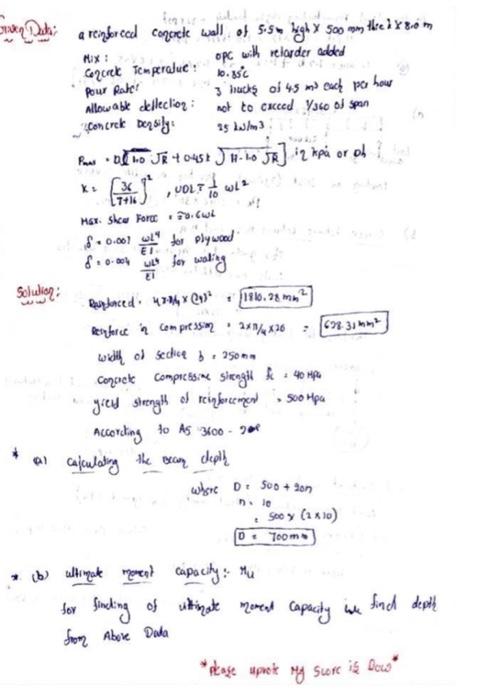 Given Data: a reinforced concrete wall of 5.5m high X 500 mm thick X 8.0 m
Mix: OPC with retarder added
Concrete Temperature:
Pour Rate: 3 trucks of 4.5 m3 each per hour
Allowable deflection: not to exceed 1/360 of span
Concrete Density: 25 kN/m3
in kpa or
K = [36/T+16]², UDL = 1/10 wL²
Max. Shear Force = 0.6wL
δ = wL⁴/EI for plywood
δ = wL⁴/EI for waling
Solution:
= 1810.28 mm²
Reinforce in compression = 2xπ/4 x20 = 628.31 mm²
width of section b = 250mm
Concrete compressive strength fc = 40 Mpa
yield strength of reinforcement = 500 Mpa
According to AS 3600 -
* (a) Calculating the Beam depth
where D = 500 + 20n
n = 10
= 500 x (2 x 10)
D = 700mm
* (b) ultimate moment capacity:- Mu
for finding of ultimate moment capacity we find depth
from Above Data
*Please upvote My Score is Low*